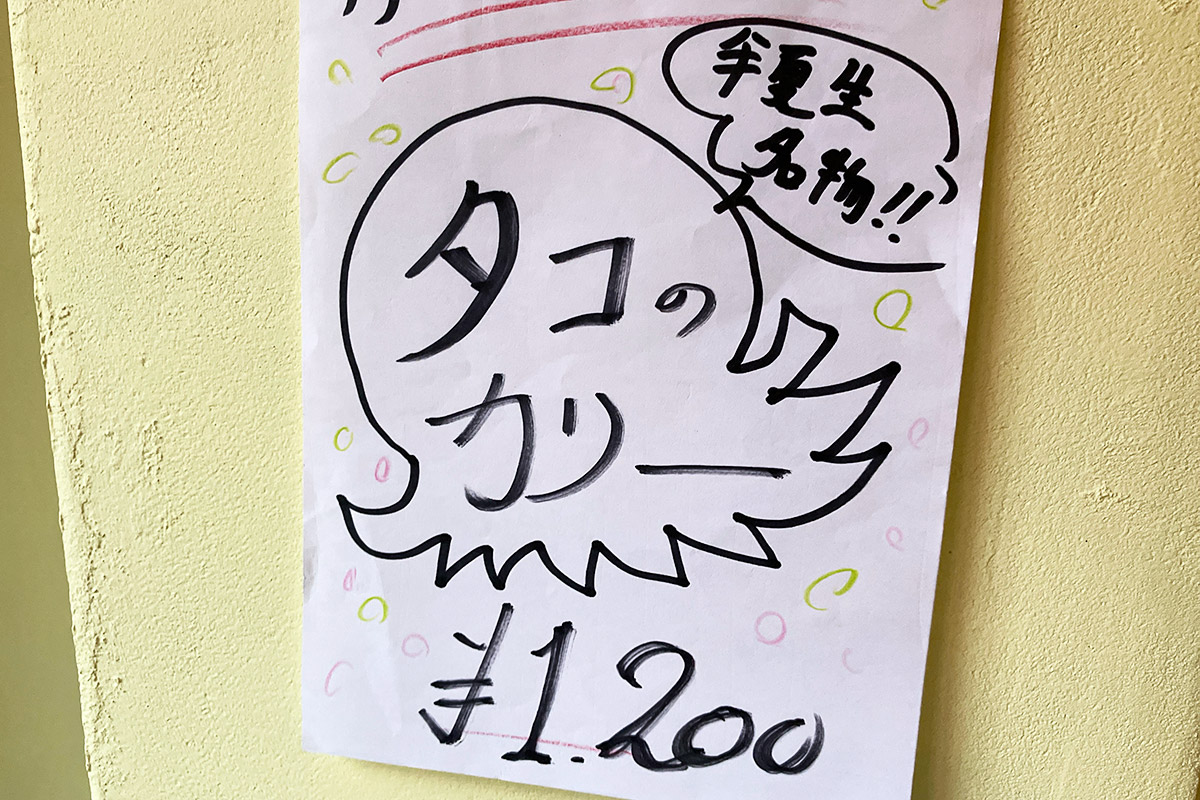 半夏生
名物!!
タコの
カリー
¥1.200